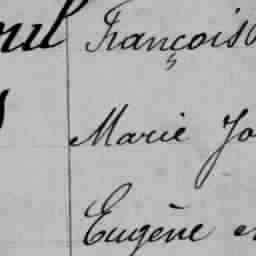 François
Marie Jo
Eugène